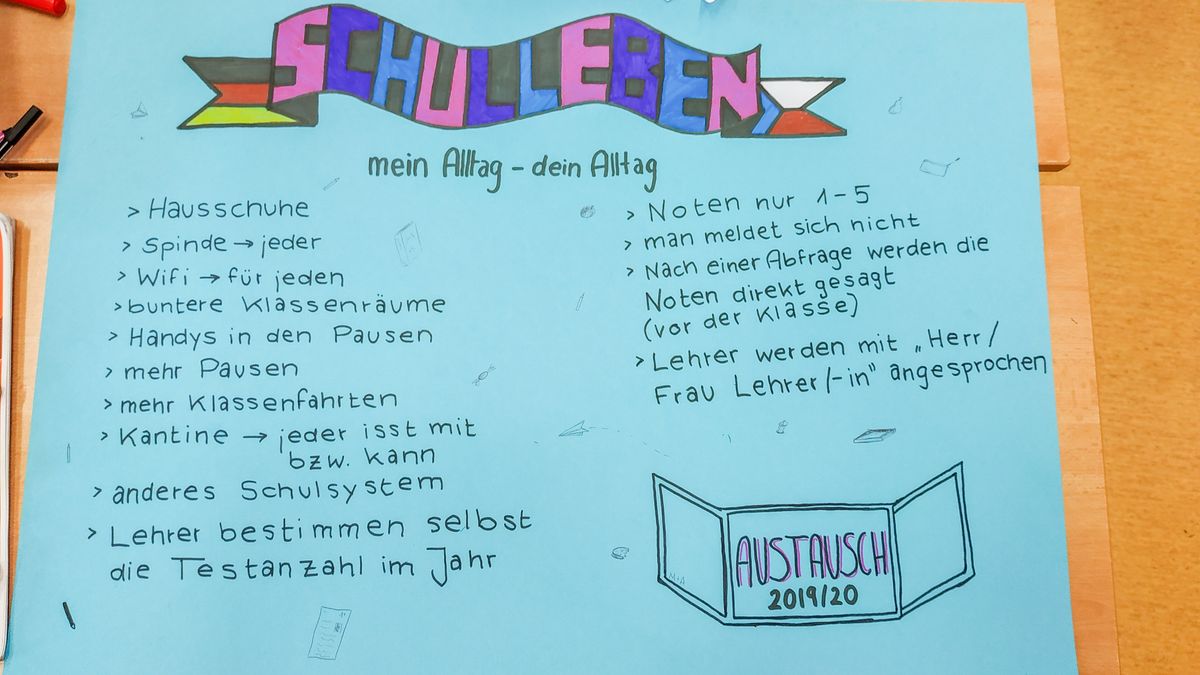 SCHULLEBEN
mein Alltag – dein Alltag
> Hausschuhe
> Spinde → jeder
> Wifi → für jeden
> buntere Klassenräume
> Handys in den Pausen
> mehr Pausen
> mehr Klassenfahrten
> Kantine → jeder isst mit
bzw. kann
> anderes Schulsystem
> Lehrer bestimmen selbst
die Testanzahl im Jahr
> Noten nur 1-5
> man meldet sich nicht
> Nach einer Abfrage werden die
Noten direkt gesagt
(vor der Klasse)
> Lehrer werden mit „Herr/
Frau Lehrer/-in" angesprochen
AUSTAUSCH
2019/20